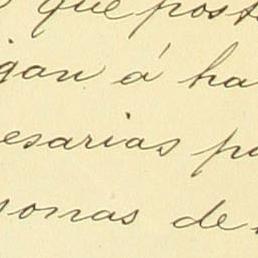 que post
gan á ha
esarias p
sonas de